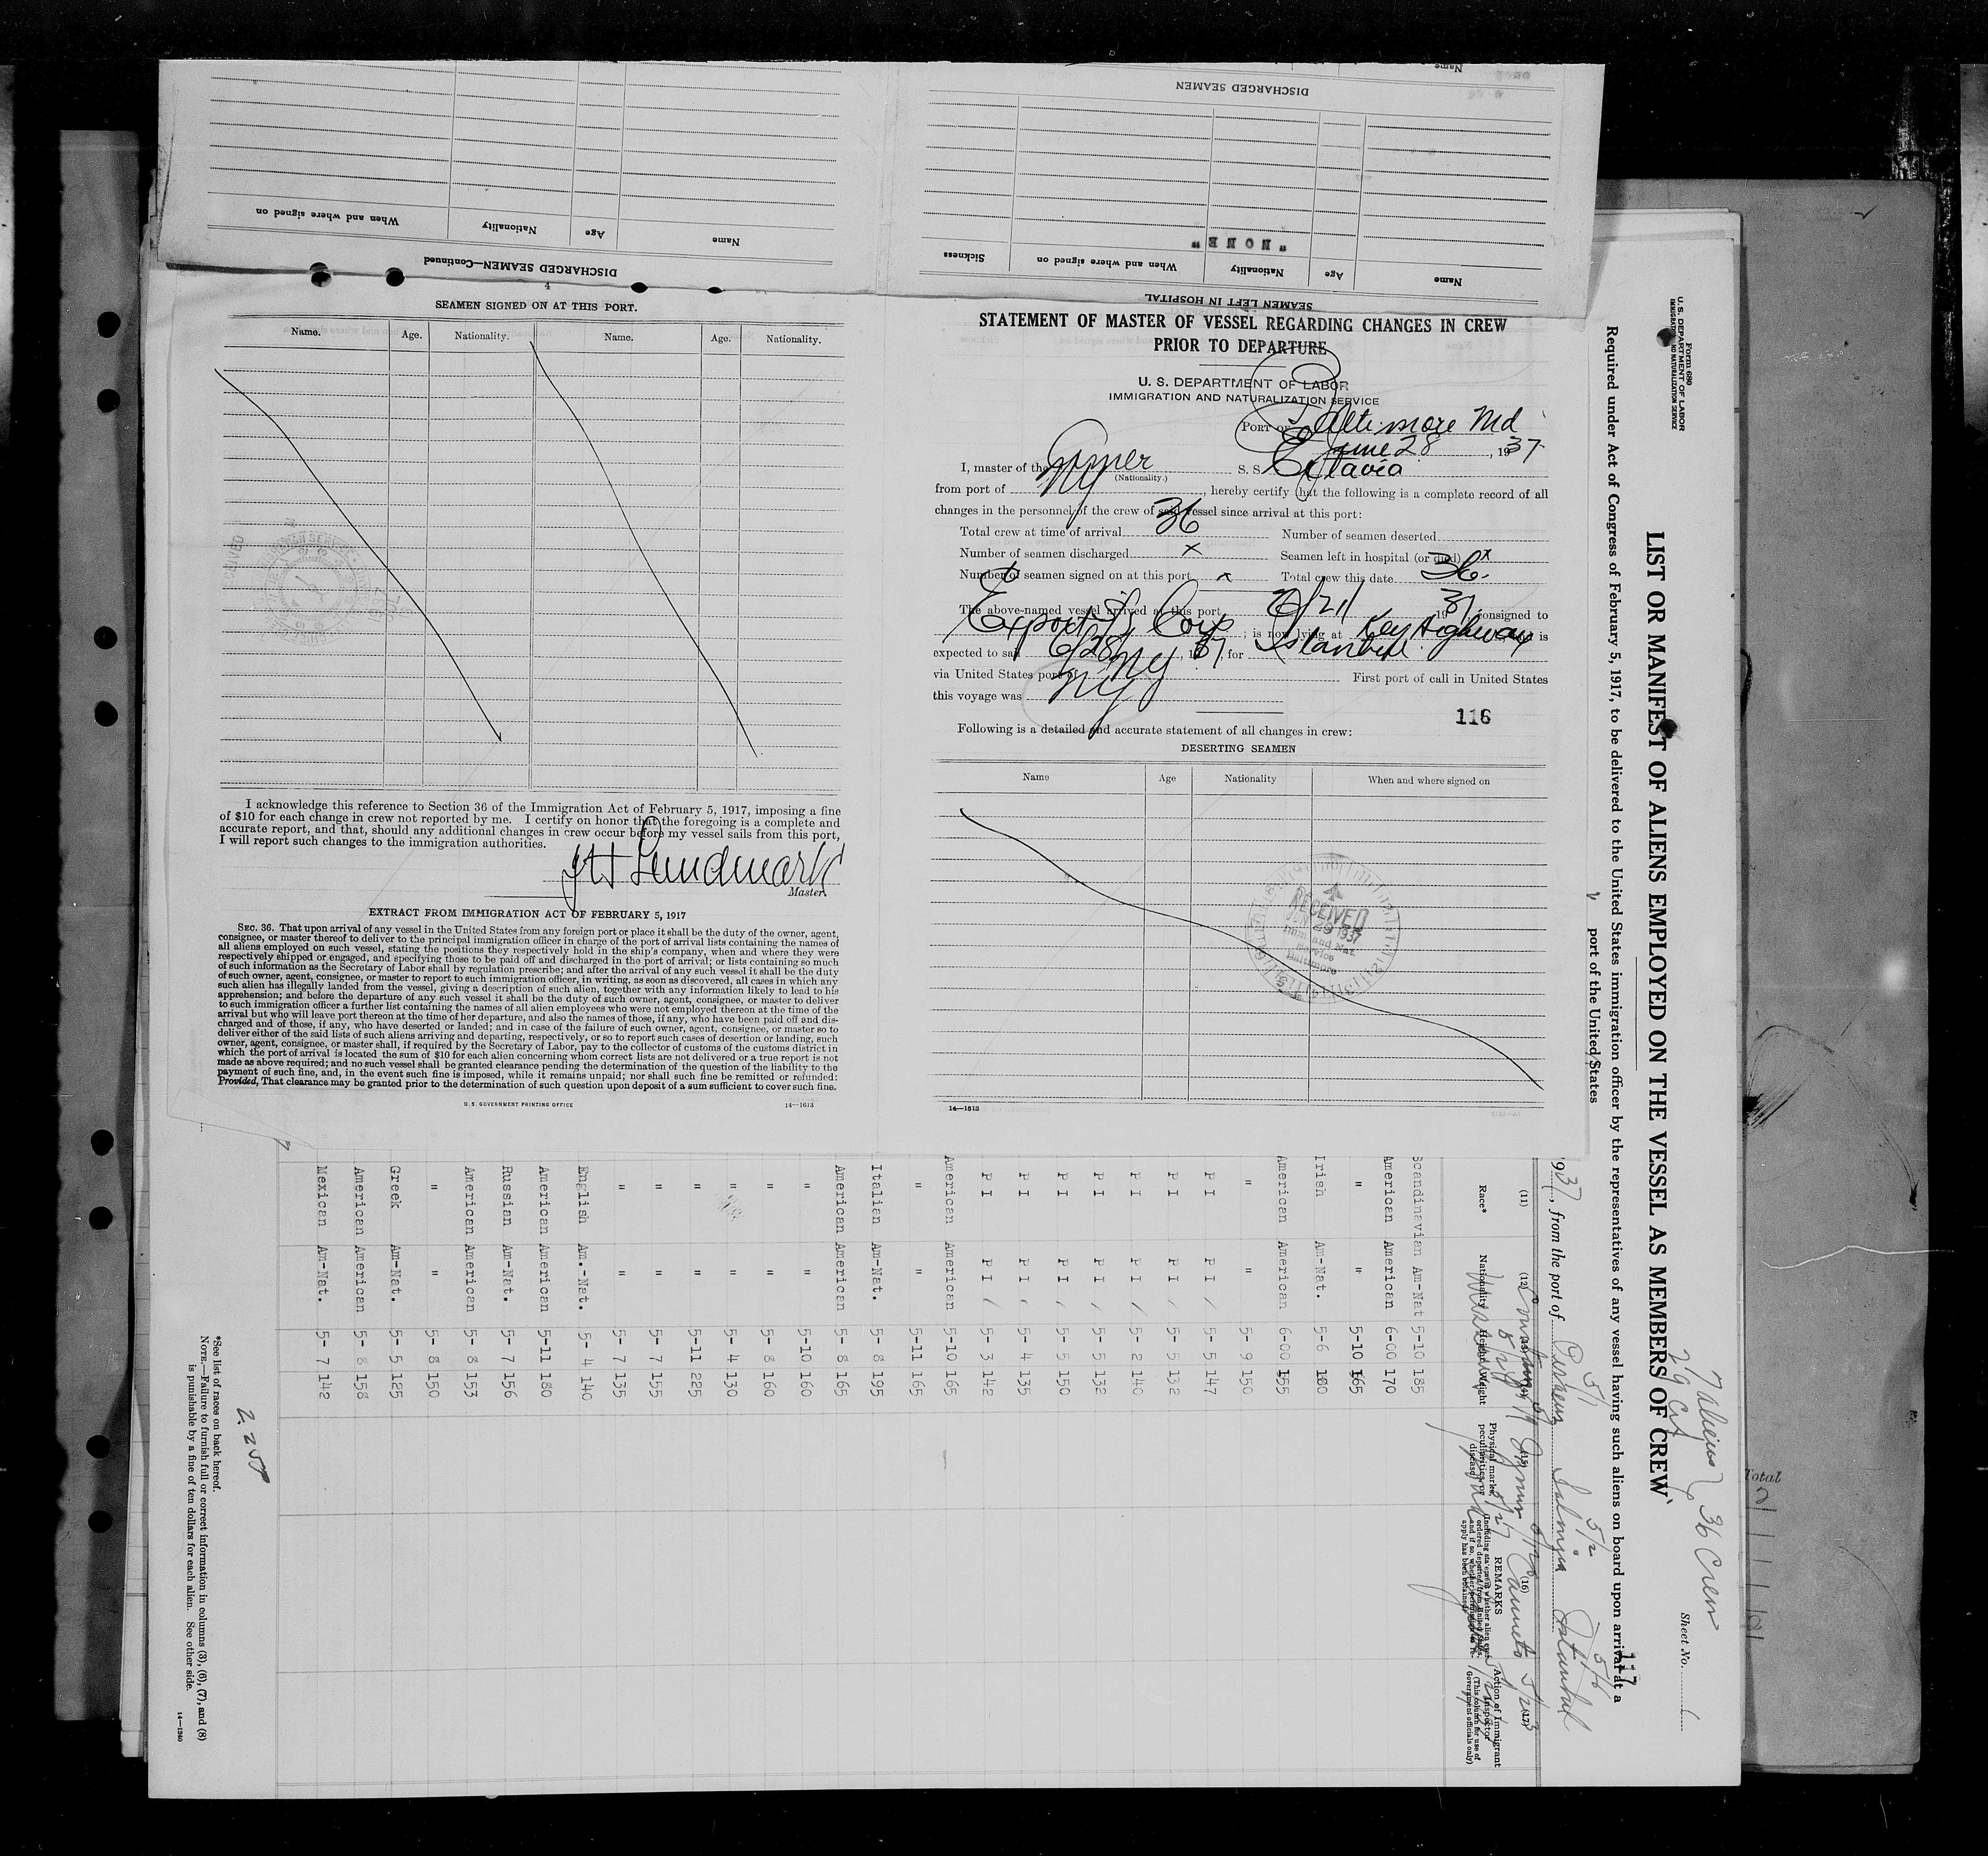 Name
DISCHARGED SEAMEN
When and where signed on
Nationality
Age
Name
DISCHARGED SEAMEN—Continued
" N O N E "
Sickness
When and where signed on
Nationality
Age
Name
SEAMEN LEFT IN HOSPITAL
4
SEAMEN SIGNED ON AT THIS PORT.
Name. Age. Nationality. Name. Age. Nationality.
I acknowledge this reference to Section 36 of the Immigration Act of February 5, 1917, imposing a fine
of $10 for each change in crew not reported by me. I certify on honor that the foregoing is a complete and
accurate report, and that, should any additional changes in crew occur before my vessel sails from this port,
I will report such changes to the immigration authorities.
Master.
EXTRACT FROM IMMIGRATION ACT OF FEBRUARY 5, 1917
SEC. 36. That upon arrival of any vessel in the United States from any foreign port or place it shall be the duty of the owner, agent,
consignee, or master thereof to deliver to the principal immigration officer in charge of the port of arrival lists containing the names of
all aliens employed on such vessel, stating the positions they respectively hold in the ship's company, when and where they were
respectively shipped or engaged, and specifying those to be paid off and discharged in the port of arrival; or lists containing so much
of such information as the Secretary of Labor shall by regulation prescribe; and after the arrival of any such vessel it shall be the duty
of such owner, agent, consignee, or master to report to such immigration officer, in writing, as soon as discovered, all cases in which any
such alien has illegally landed from the vessel, giving a description of such alien, together with any information likely to lead to his
apprehension; and before the departure of any such vessel it shall be the duty of such owner, agent, consignee, or master to deliver
to such immigration officer a further list containing the names of all alien employees who were not employed thereon at the time of the
arrival but who will leave port thereon at the time of her departure, and also the names of those, if any, who have been paid off and dis-
charged and of those, if any, who have deserted or landed; and in case of the failure of such owner, agent, consignee, or master so to
deliver either of the said lists of such aliens arriving and departing, respectively, or so to report such cases of desertion or landing, such
owner, agent, consignee, or master shall, if required by the Secretary of Labor, pay to the collector of customs of the customs district in
which the port of arrival is located the sum of $10 for each alien concerning whom correct lists are not delivered or a true report is not
made as above required; and no such vessel shall be granted clearance pending the determination of the question of the liability to the
payment of such fine, and, in the event such fine is imposed, while it remains unpaid; nor shall such fine be remitted or refunded:
Provided, That clearance may be granted prior to the determination of such question upon deposit of a sum sufficient to cover such fine.
U. S. GOVERNMENT PRINTING OFFICE 14—1613
STATEMENT OF MASTER OF VESSEL REGARDING CHANGES IN CREW
PRIOR TO DEPARTURE
U. S. DEPARTMENT OF LABOR
IMMIGRATION AND NATURALIZATION SERVICE
PORT OF Baltimore Md
June 28, 1937
I, master of the Amer S. S. Extavia
(Nationality.)
from port of NY, hereby certify that the following is a complete record of all
changes in the personnel of the crew of said vessel since arrival at this port:
Total crew at time of arrival 36 Number of seamen deserted
Number of seamen discharged x Seamen left in hospital (or died) x
Number of seamen signed on at this port x Total crew this date 36.
The above-named vessel arrived at this port 6/21 1937, consigned to
Export SS Corp; is now lying at Key Highway is
expected to sail 6/28, 1937, for Istanbul.
via United States port of NY First port of call in United States
this voyage was NY
116
Following is a detailed and accurate statement of all changes in crew:
DESERTING SEAMEN
Name Age Nationality When and where signed on
RECEIVED
JUN 29 1937
Imm. and Nat.
Service
Baltimore
14—1613
Form 680
U. S. DEPARTMENT OF LABOR
IMMIGRATION AND NATURALIZATION SERVICE
LIST OR MANIFEST OF ALIENS EMPLOYED ON THE VESSEL AS MEMBERS OF CREW
7 Aliens
36 Crew
Sheet No.
Required under Act of Congress of February 5, 1917, to be delivered to the United States immigration officer by the representatives of any vessel having such aliens on board upon arrival at a
port of the United States
117
1937, from the port of
5/1 5/2 5/6
Istanbul
(11) (12) (16)
Race* Nationality Height Weight Physical marks, peculiarities, or disease REMARKS Action of Immigrant Inspector
(This column for use of Government officials only)
Scandinavian Am-Nat 5-10 185
American American 6-00 170
" " 5-10 165
Irish Am-Nat. 5-6 180
American American 6-00 155
" " 5- 9 150
P I P I 5- 5 147
P I P I 5- 5 132
P I P I 5- 2 140
P I P I 5- 5 132
P I P I 5- 5 150
P I P I 5- 4 135
P I P I 5- 3 142
American American 5-10 165
" " 5-11 165
Italian Am-Nat. 5- 8 195
American American 5- 8 165
" " 5-10 160
" " 5- 8 160
" " 5- 4 130
" " 5-11 225
" " 5- 7 155
" " 5- 7 135
English Am.-Nat. 5- 4 140
American American 5-11 180
Russian Am-Nat. 5- 7 156
American American 5- 8 153
" " 5- 8 150
Greek Am-Nat. 5- 5 125
American American 5- 8 158
Mexican Am-Nat. 5- 7 142
*See list of races on back hereof.
NOTE.—Failure to furnish full or correct information in columns (3), (6), (7), and (8)
is punishable by a fine of ten dollars for each alien. See other side.
14—1240
Total